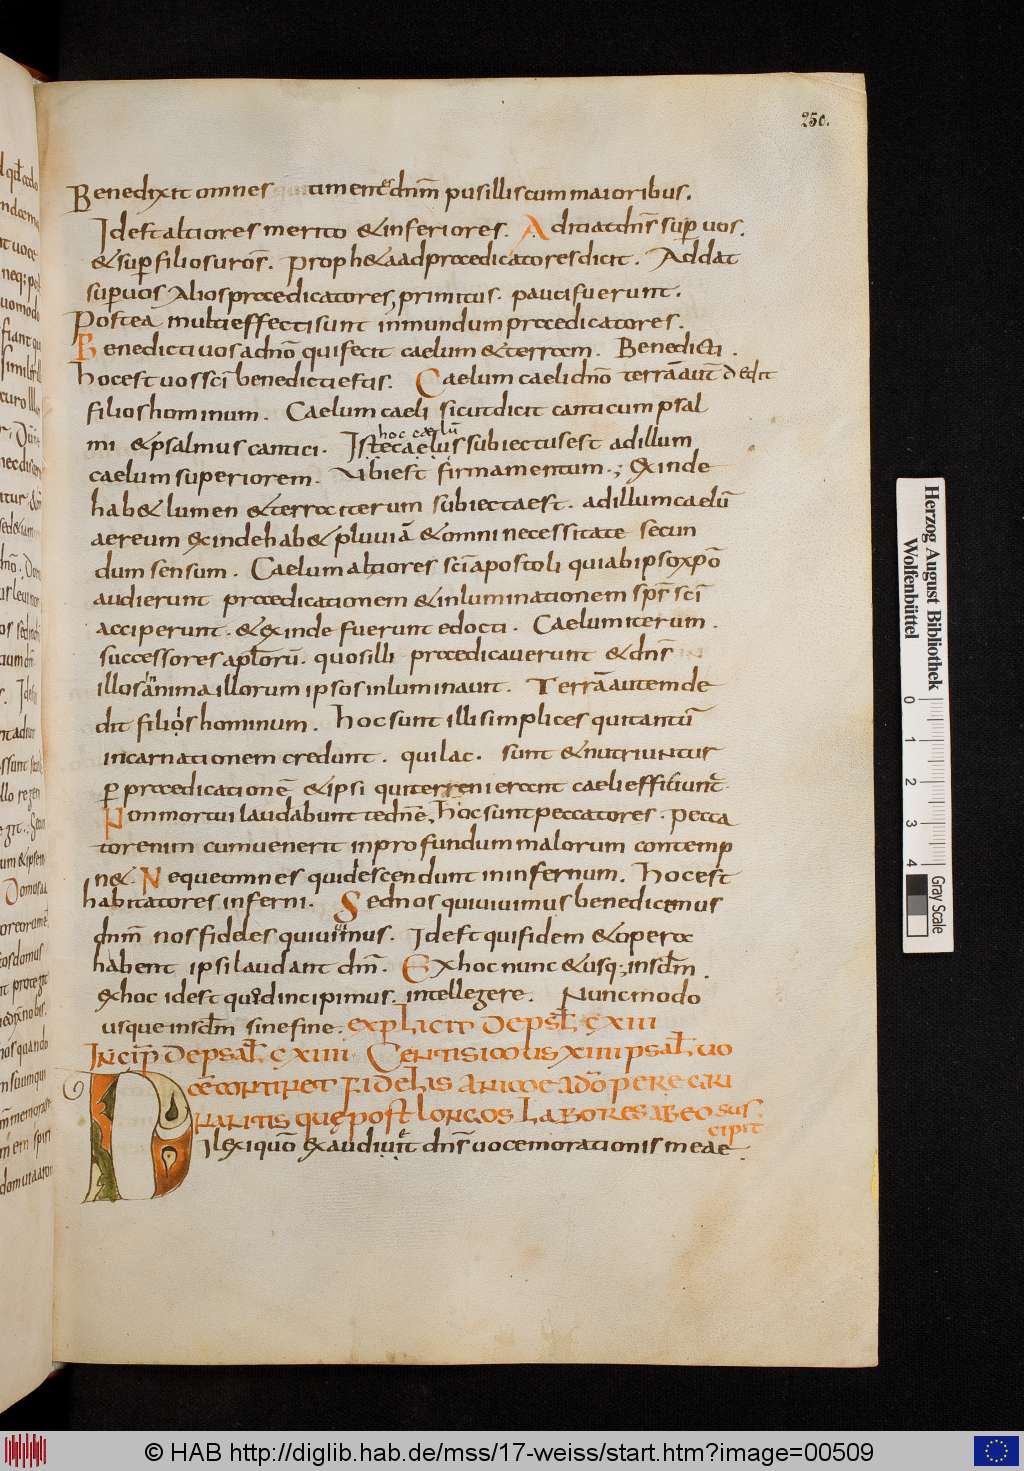 250.
Benedixit omnes qui timent dnm̄ pusillis cum maioribus.
Id est altiores merito & inferiores. Adiciat dns̄ sup̄ uos.
& sup̄ filios uros̄. Proph&a ad praedicatores dicit. Addat
sup̄ uos alios praedicatores, primitus. pauci fuerunt.
Postea multi effecti sunt in mundum praedicatores.
Benedicti uos adnō qui fecit caelum & terram. Benedicti.
hoc est uos scī benedicti estis. Caelum caeli dnō terrā aut̄ dedit
filios hominum. Caelum caeli sicut dicit canticum psal
mi & psalmus cantici. Iste caelus subiectus est ad illum
hoc caelū
caelum superiorem. Ubi est firmamentum.; Exinde
hab& lumen & terra iterum subiecta est. ad illum caelū
aereum exinde hab& pluuiā & omni necessitate secun
dum sensum. Caelum altiores scī apostoli quia ab ipso xpō
audierunt praedicationem & inluminationem spr̄ scī
acciperunt. & exinde fuerunt edocti. Caelum iterum.
successores aplorū. quos illi praedicauerunt & dns̄
illos in anima illorum ipsos inluminauit. Terrā autem de
dit filiis hominum. hoc sunt illi simplices qui tantū
incarnationem credunt. qui lac. sunt & nutriuntur
p̲ praedicationē & ipsi qui terreni erant caeli efficiunt̄
Non mortui laudabunt te dnē, hoc sunt peccatores. pecca
tor enim cum uenerit in profundum malorum contemp
n&. Neque omnes qui descendunt in infernum. hoc est
habitatores inferni. Sed nos qui uiuimus benedicimus
dnm̄ nos fideles qui uiuimus. Id est qui fidem & opera
habent ipsi laudant dm̄. Ex hoc nunc & usq; in scl̄m.
ex hoc id est quod incipimus. intellegere. Nunc modo
usque in scl̄m sine fine. explicit de psl̄ cxiii
Incip̄ de psal̄ cxiiii Centisimus xiiii psal̄ uo
cē continet fidelis animae ad dō pere gri
nantis quę post longos labores ab eo sus
cipit
Dilexi quō exaudiuit dns̄ uocem orationis meae.
Herzog August Bibliothek
Wolfenbüttel
0 1 2 3 4
Gray Scale
© HAB http://diglib.hab.de/mss/17-weiss/start.htm?image=00509